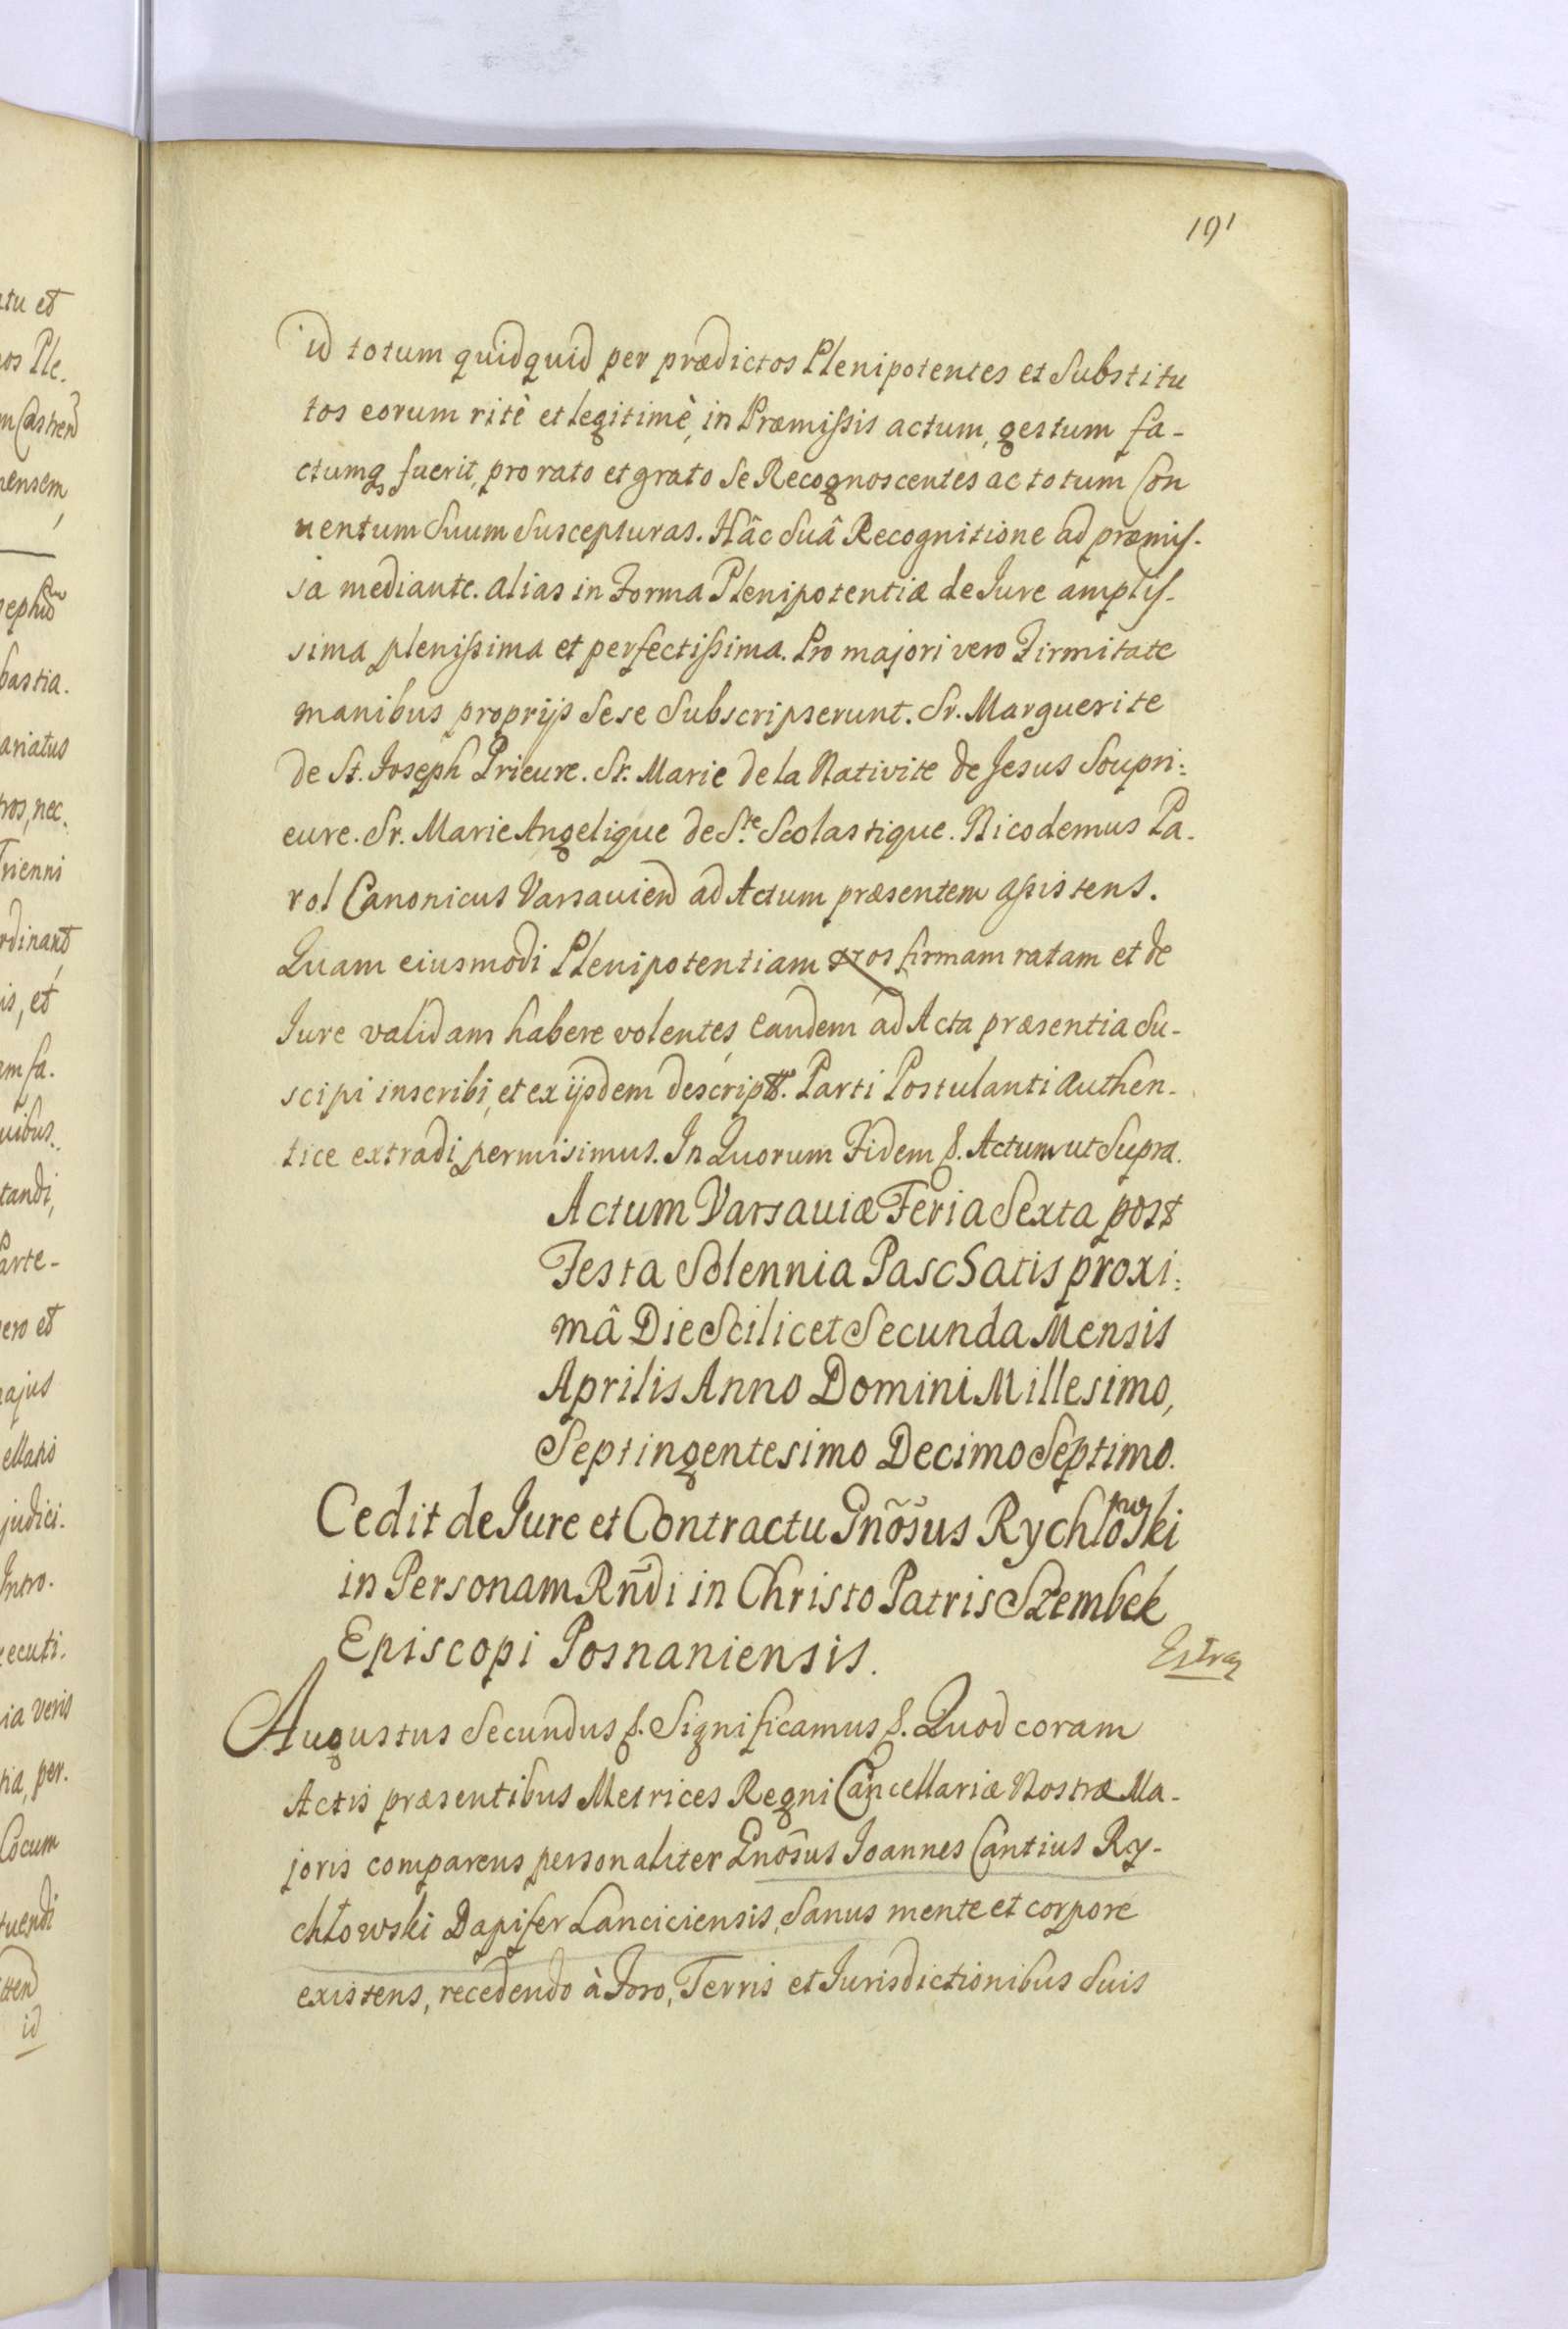 191
id totum quidquid per prædictos Plenipotentes et Substitu
tos eorum ritè et legitimè, in Præmissis actum, gestum fa-
ctumq fuerit, pro rato et grato Se Recognoscentes ac totum Con
uentum Suum Suscepturas. Hâc Suâ Recognitione ad præmis-
sa mediante. alias in Forma Plenipotentiæ de Iure amplis-
sima plenissima et perfectissima. Pro majori vero Firmitate
manibus proprijs Sese Subscripserunt. Sr. Marguerite
de St. Joseph Prieure. Sr. Marie de la Nativite de Jesus Soupri:
eure. Sr. Marie Angelique de Ste. Scolastique. Nicodemus Pa-
rol Canonicus Varsauien ad Actum præsentem assistens.
Quam eiusmodi Plenipotentiam firmam ratam et de
Iure validam habere volentes, eandem ad Acta præsentia Su-
scipi inscribi, et ex ijsdem descript. Parti Postulanti authen-
tice extradi permisimus. In Quorum Fidem &. Actum ut Supra.
Actum Varsauiæ Feria Sexta post
Festa Solennia Paschatis proxi:
mâ Die Scilicet Secunda Mensis
Aprilis Anno Domini Millesimo,
Septingentesimo Decimo Septimo.
Cedit de Iure et Contractu Gnõsus Rychłowski
in Personam Rñdi in Christo Patris Szembek
Episcopi Posnaniensis.
Augustus Secundus &. Significamus &. Quod coram
Actis præsentibus Metrices Regni Cancellariæ Nostræ Ma-
joris comparens personaliter Gnõsus Ioannes Cantius Ry-
chłowski Dapifer Lanciciensis, Sanus mente et corpore
existens, recedendo à Foro, Terris et Iurisdictionibus Suis